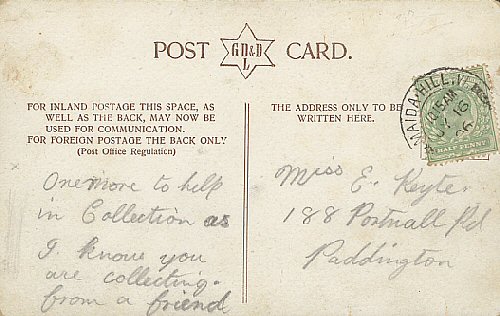 POST CARD.
G.D.&D
L
FOR INLAND POSTAGE THIS SPACE, AS
WELL AS THE BACK, MAY NOW BE
USED FOR COMMUNICATION.
FOR FOREIGN POSTAGE THE BACK ONLY
(Post Office Regulation)
THE ADDRESS ONLY TO BE
WRITTEN HERE.
MAIDA.HILL.W.
16
06
HALF PENNY
One more to help
in Collection as
I know you
are collecting.
from a friend
Miss E. Keyter
188 Portnall Rd
Paddington